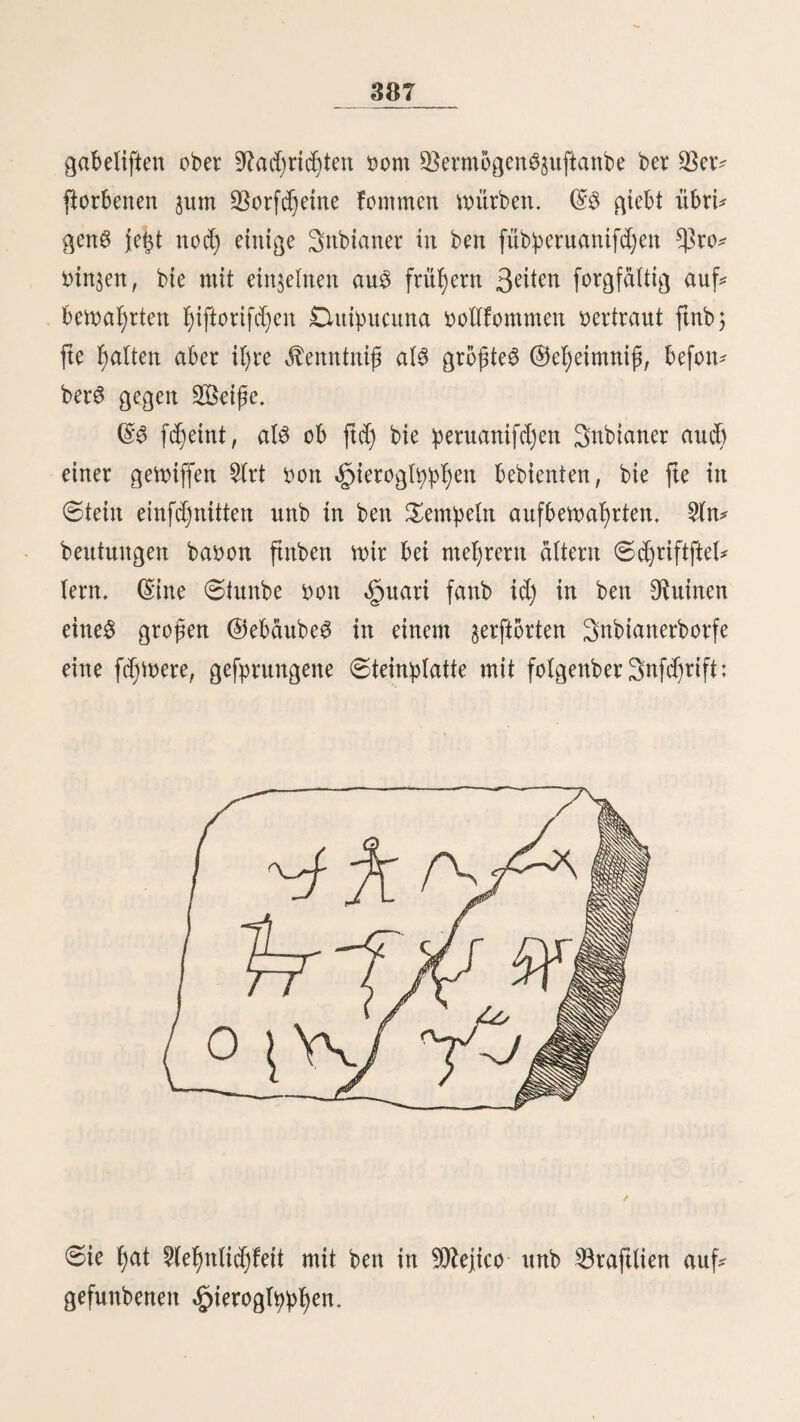 387
gabeliſten oder Nachrichten vom Vermögenszuſtande der Ver⸗
ſtorbenen zum Vorſcheine kommen würden. Es giebt übri⸗
gens jetzt noch einige Indianer in den ſüdperuaniſchen Pro⸗
vinzen, die mit einzelnen aus frühern Zeiten ſorgfältig auf⸗
bewahrten hiſtoriſchen Quipucuna vollkommen vertraut ſind;
ſie halten aber ihre Kenntniß als größtes Geheimniß, beſon⸗
ders gegen Weiße.
Es ſcheint, als ob ſich die peruaniſchen Indianer auch
einer gewiſſen Art von Hieroglyphen bedienten, die ſie in
Stein einſchnitten und in den Tempeln aufbewahrten. An⸗
deutungen davon finden wir bei mehrern ältern Schriftſtel⸗
lern. Eine Stunde von Huari fand ich in den Ruinen
eines großen Gebäudes in einem zerſtörten Indianerdorfe
eine ſchwere, geſprungene Steinplatte mit folgender Inſchrift:
Sie hat Aehnlichkeit mit den in Mejico und Braſilien auf⸗
gefundenen Hieroglyphen.